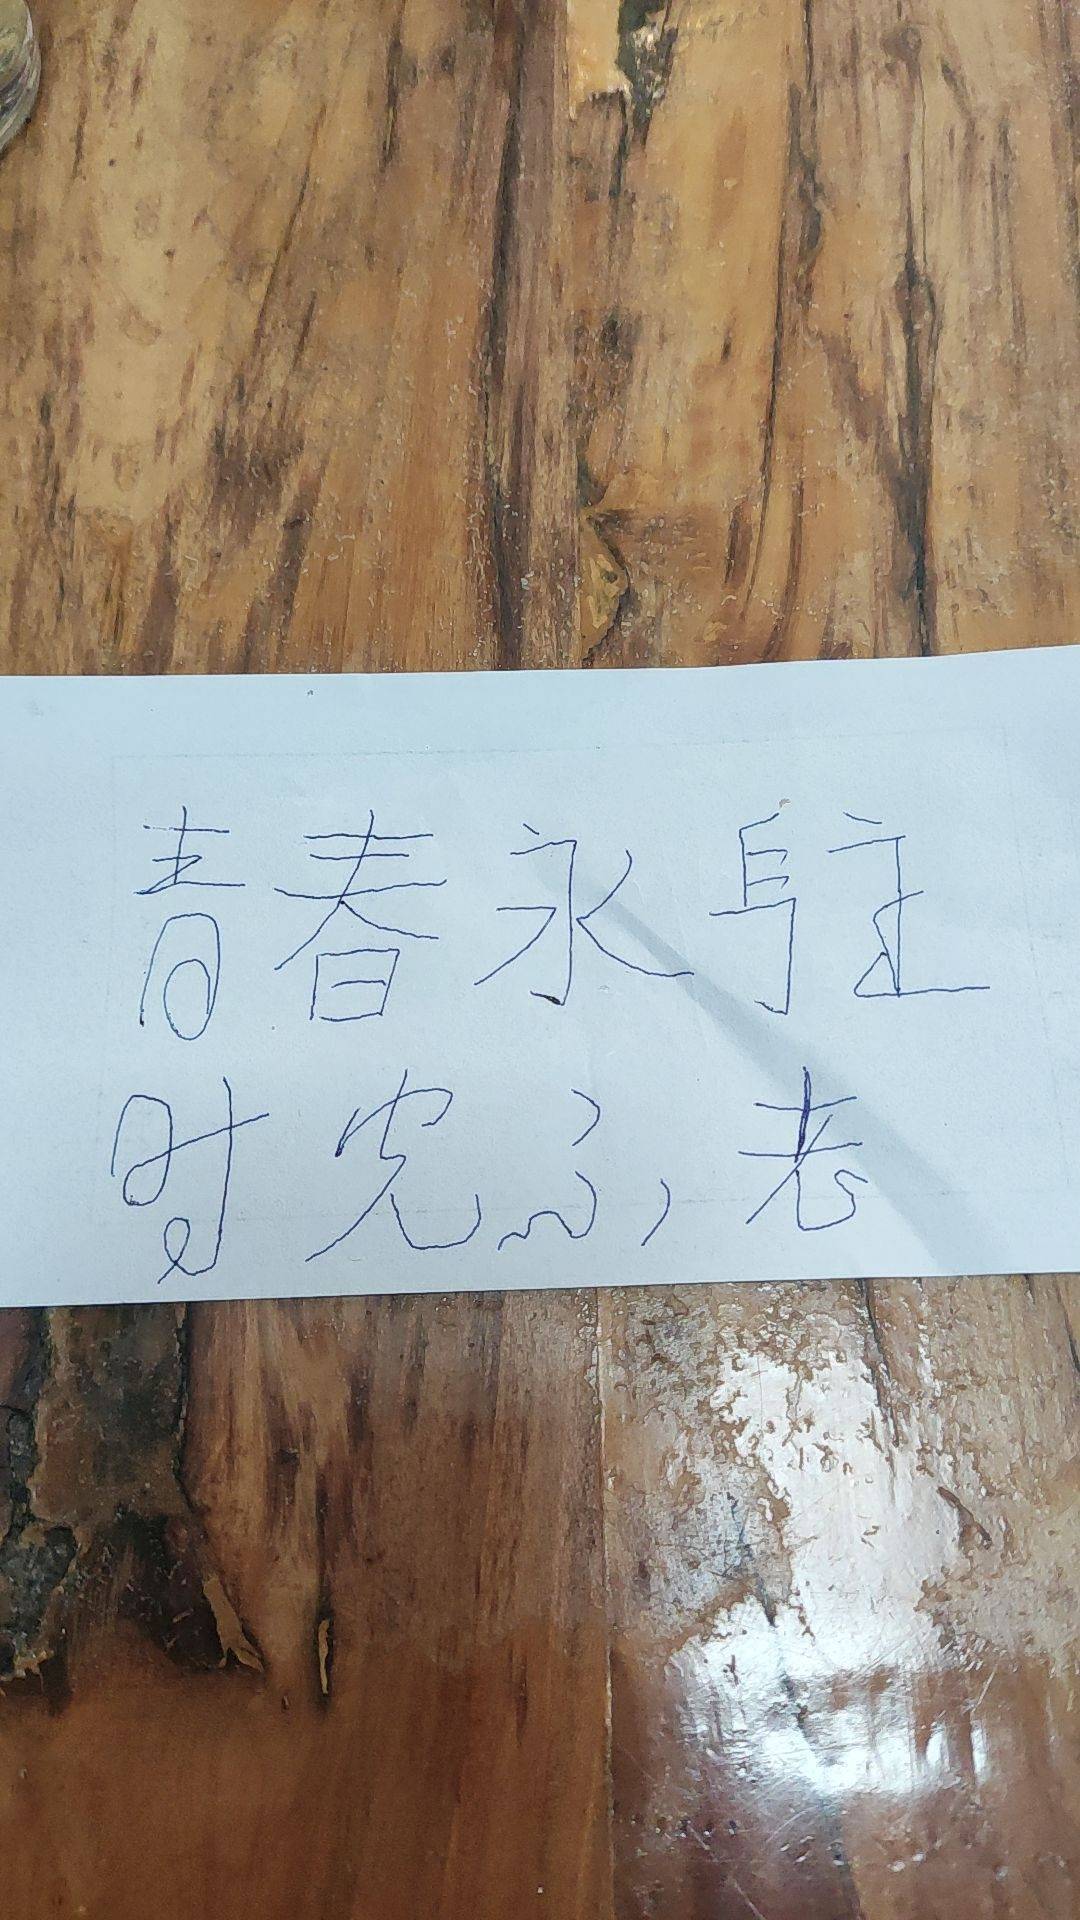 青春永驻
时光不老